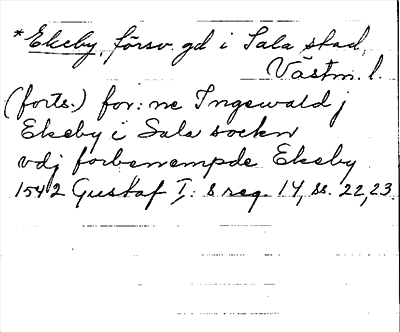 *Ekeby, försv. gd i Sala stad,
Västm. l.
(forts.) for: ne Ingewald j
Ekeby i Sala sockn
vdj forbenempde Ekeby
1542 Gustaf I: s reg. 14, ss. 22, 23.